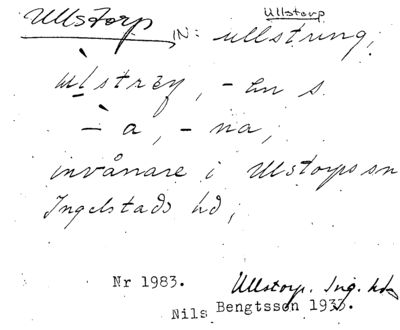 Ullstorp
Ullstorp
IN: ullstring,
-en s.
- à, - na,
invånare i Ullstorps sn
Ingelstads hd,
Nr 1983. Ullstorp. Ing. hd
Nils Bengtsson 1933.